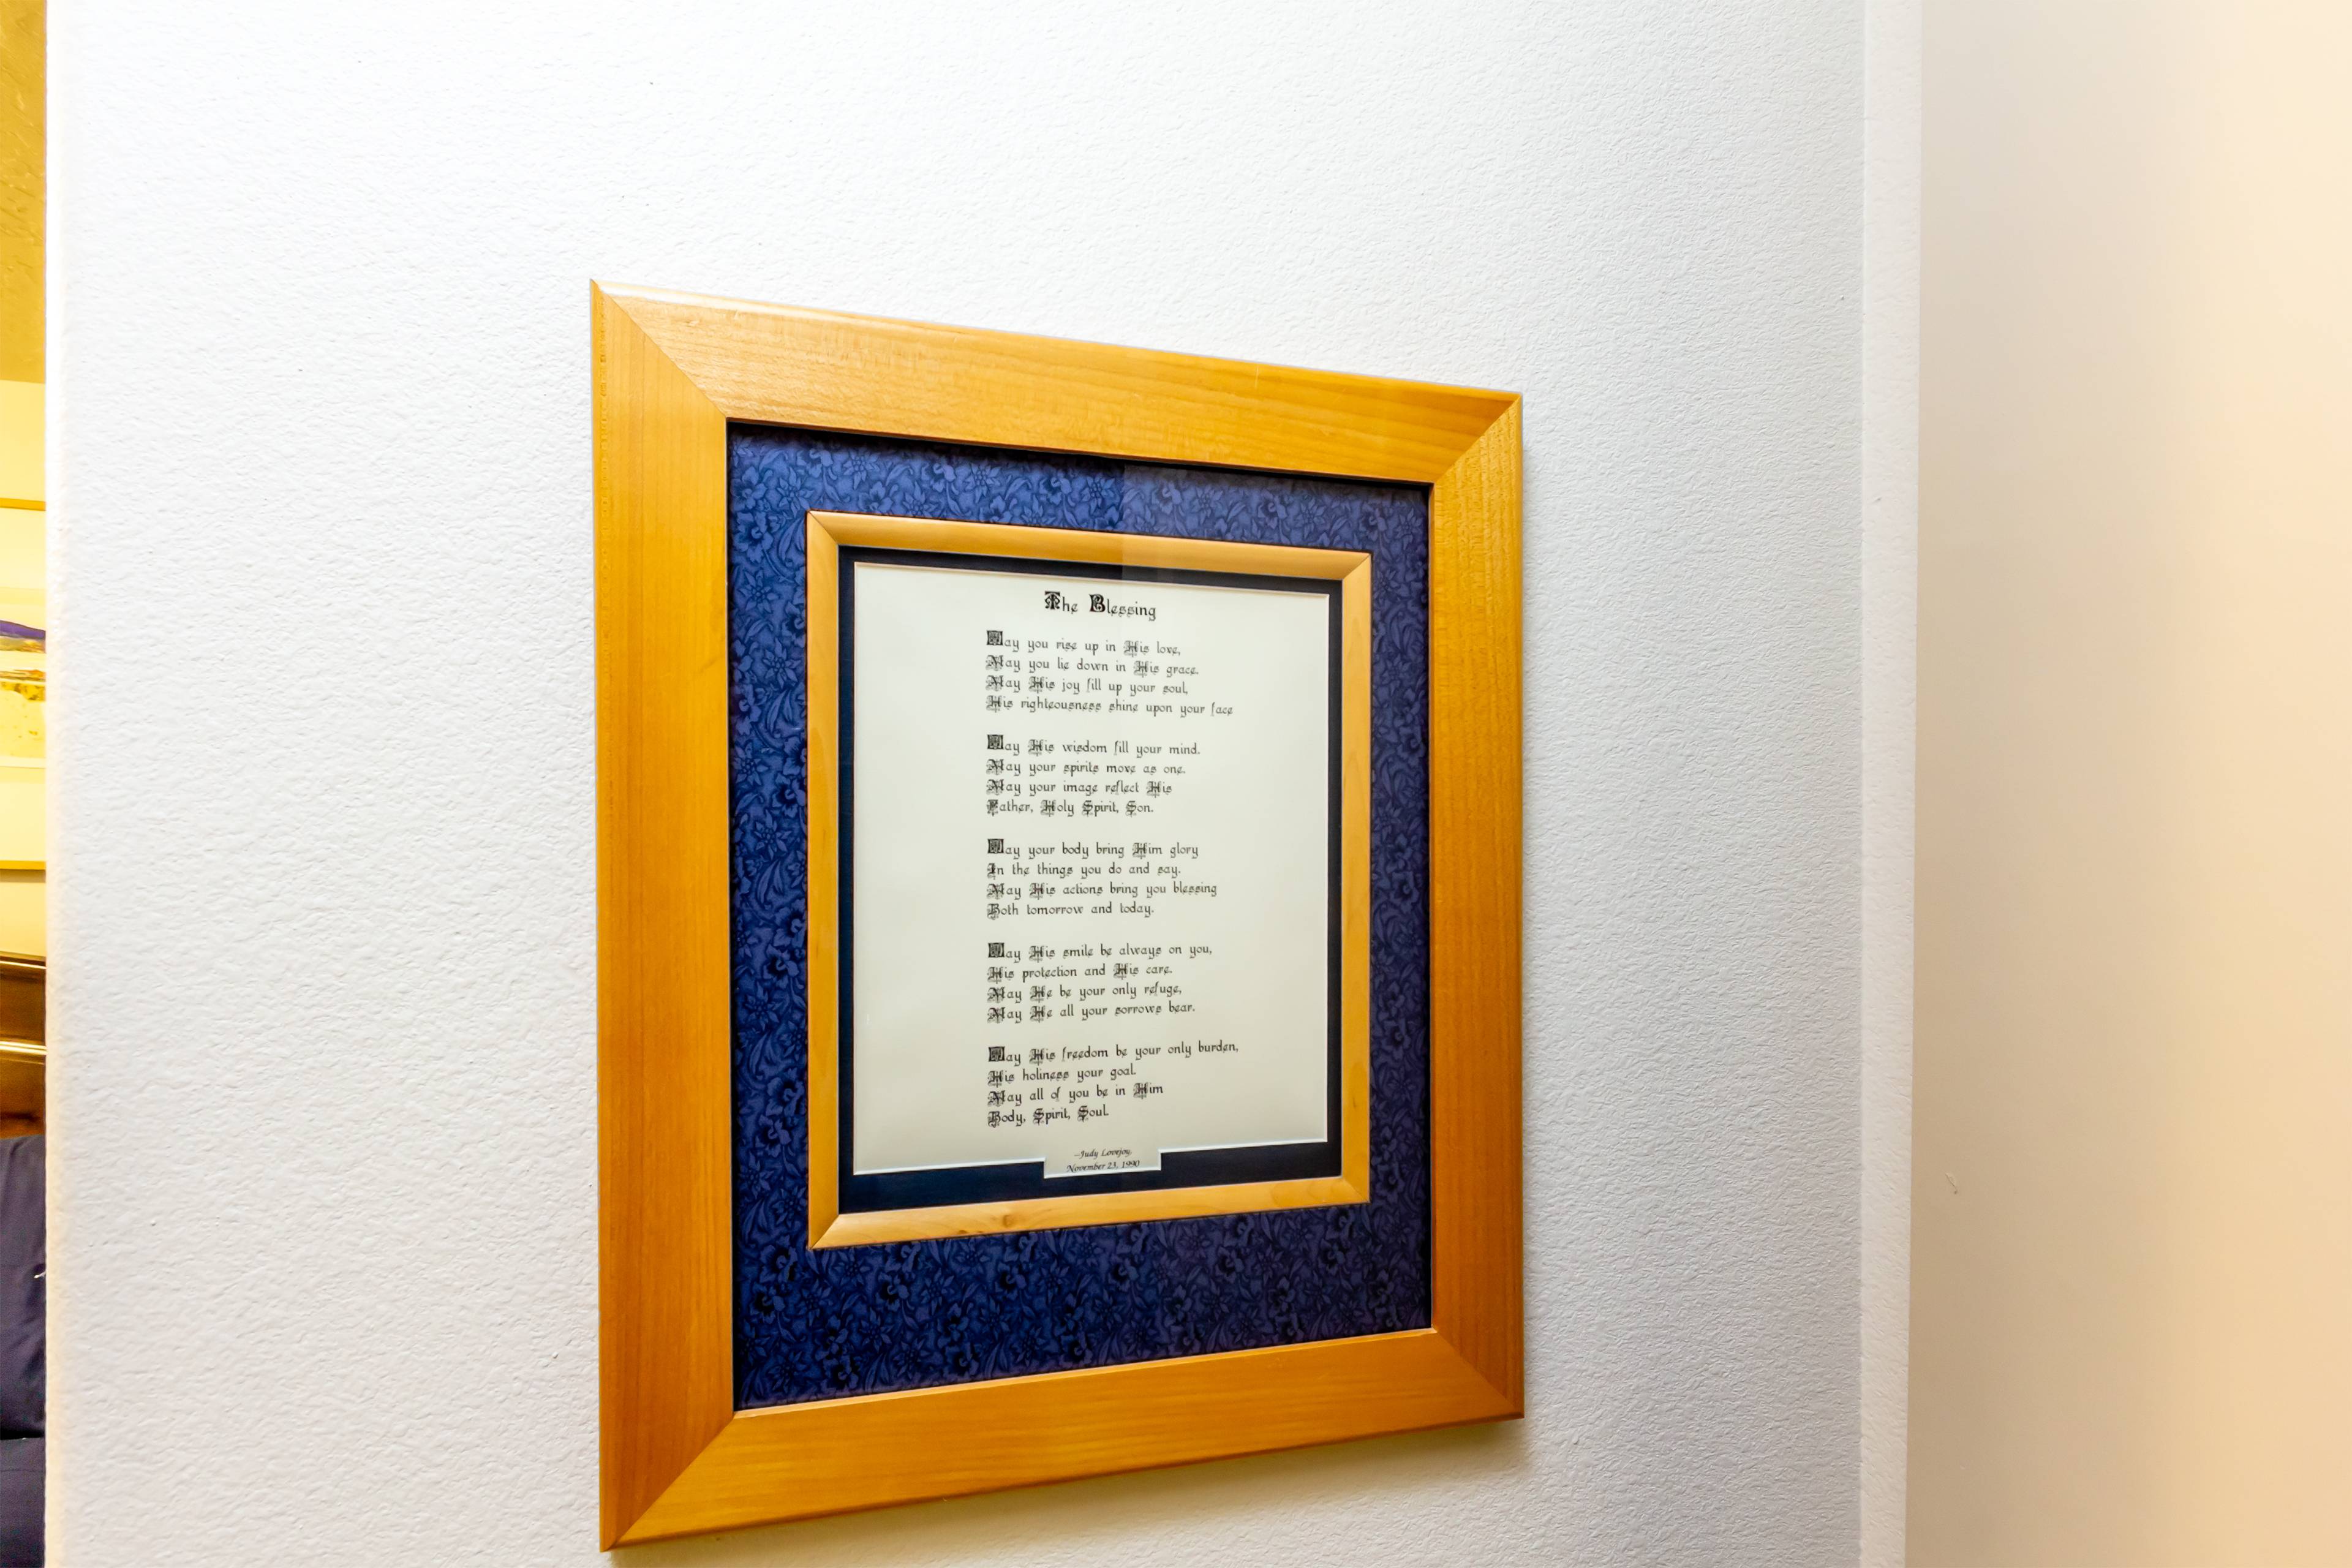 The Blessing
May you rise up in His love,
May you lie down in His grace.
May His joy fill up your soul,
His righteousness shine upon your face
May His wisdom fill your mind.
May your spirits move as one.
May your image reflect His
Father, Holy Spirit, Son.
May your body bring Him glory
In the things you do and say.
May His actions bring you blessing
Both tomorrow and today.
May His smile be always on you,
His protection and His care.
May He be your only refuge,
May He all your sorrows bear.
May His freedom be your only burden,
His holiness your goal.
May all of you be in Him
Body, Spirit, Soul.
--Judy Lovejoy,
November 23, 1990